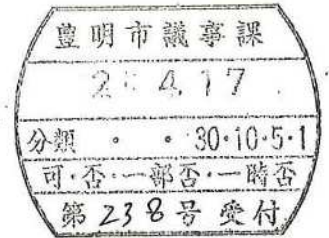 豊明市議事課
2 . 4. 17
分類 ・ ・ 30・10・5・1
可・否・一部否・一時否
第 238 号 受付